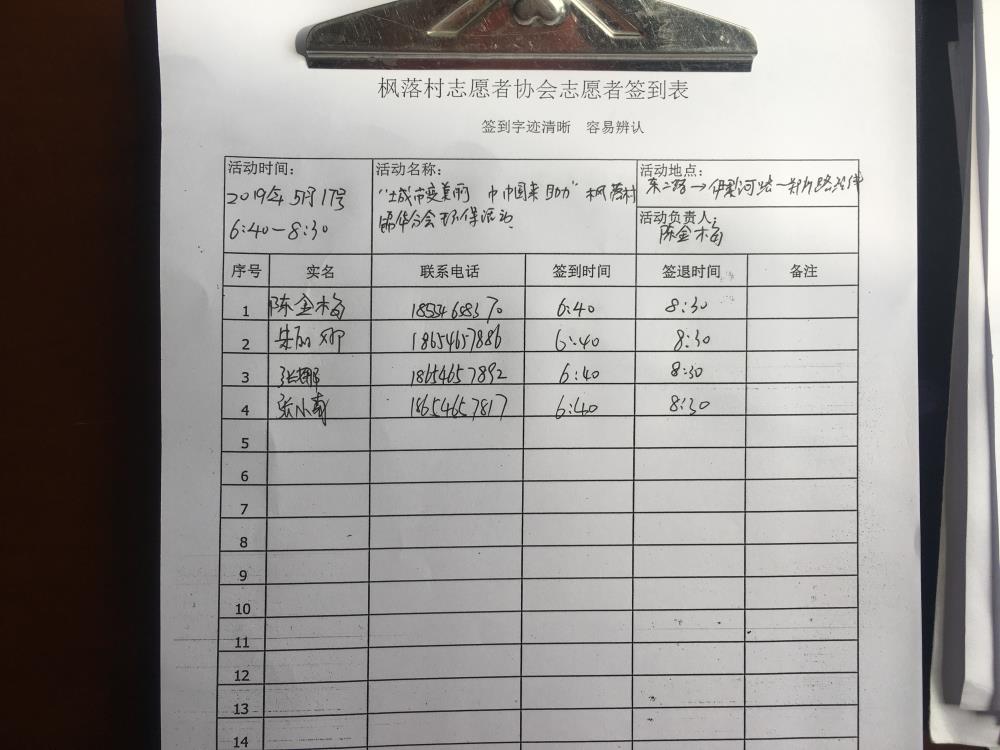 枫落村志愿者协会志愿者签到表
签到字迹清晰 容易辨认
活动时间:
2019年5月17号
6:40-8:30
活动名称:
"城市变美丽 巾帼来助力"枫落村
分会环保活动
活动地点:
东二路→伊犁河路
活动负责人:
陈金梅
序号 实名 联系电话 签到时间 签退时间 备注
1 陈金梅 18554658370 6:40 8:30
2 18654657886 6:40 8:30
3 张娜 18654657892 6:40 8:30
4 张小南 18654657817 6:40 8:30
5
6
7
8
9
10
11
12
13
14